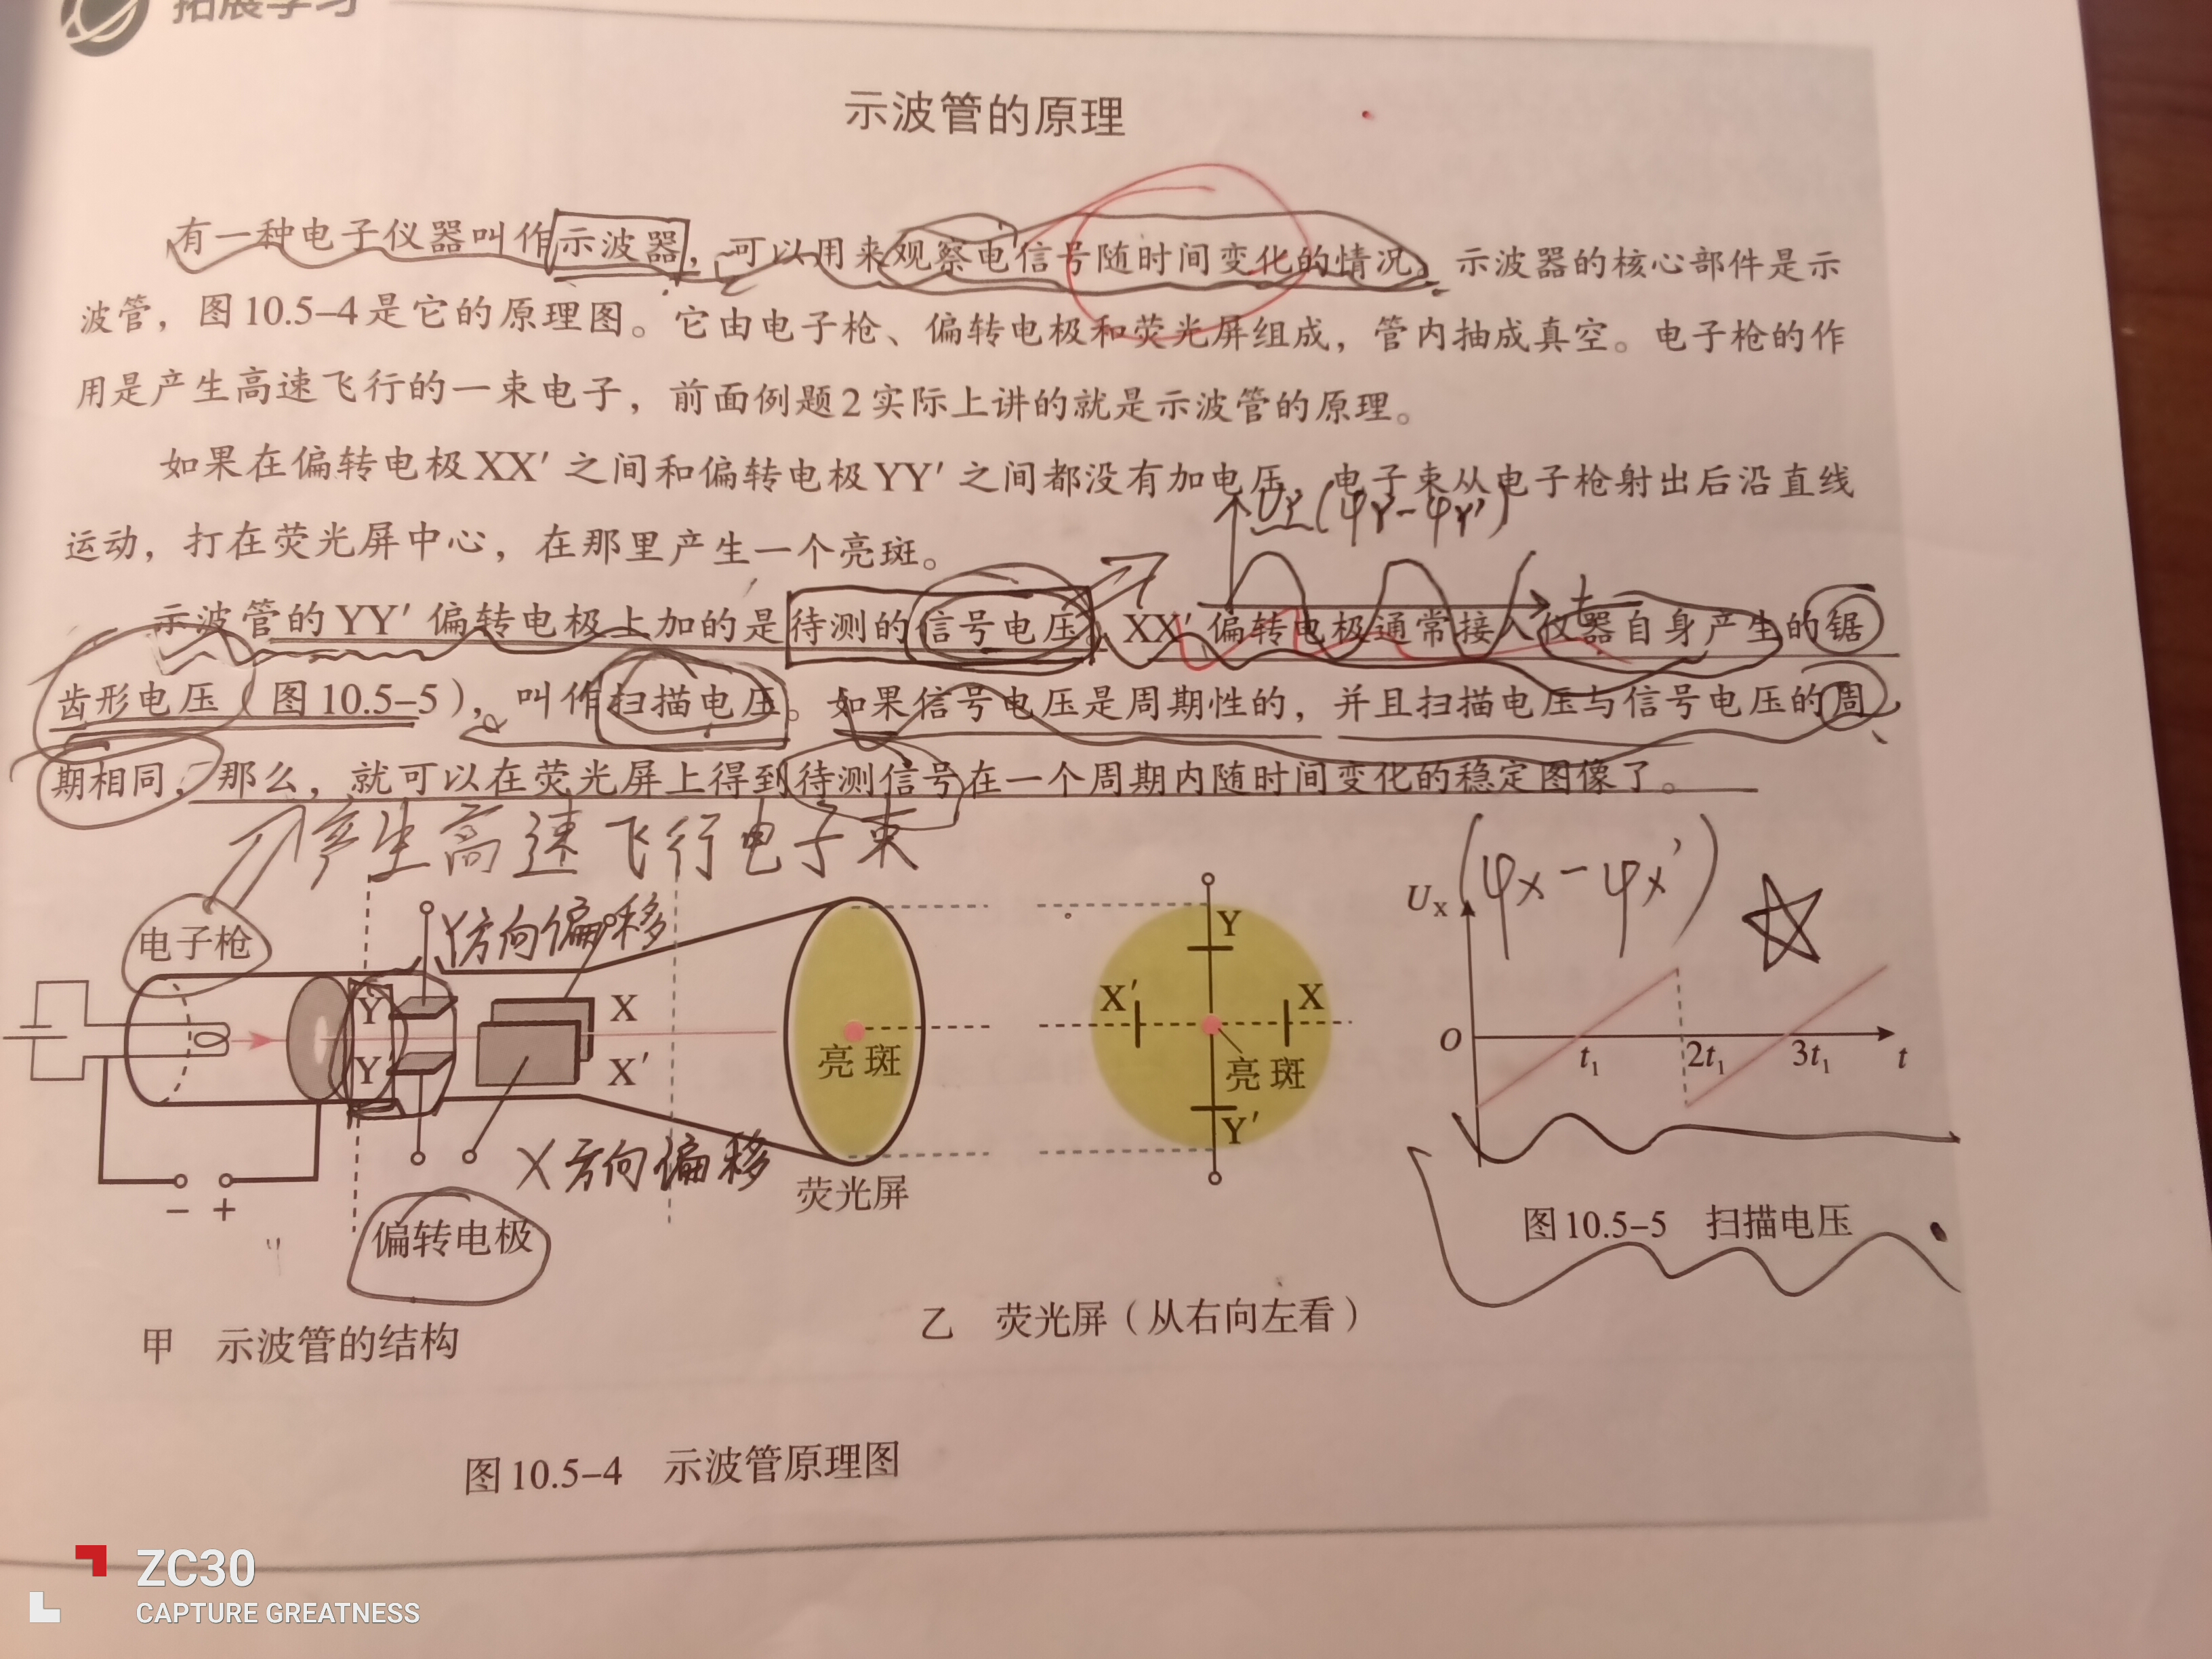 拓展学习
示波管的原理
有一种电子仪器叫作示波器，可以用来观察电信号随时间变化的情况。示波器的核心部件是示
波管，图10.5-4是它的原理图。它由电子枪、偏转电极和荧光屏组成，管内抽成真空。电子枪的作
用是产生高速飞行的一束电子，前面例题2实际上讲的就是示波管的原理。
如果在偏转电极XX′之间和偏转电极YY′之间都没有加电压，电子束从电子枪射出后沿直线
运动，打在荧光屏中心，在那里产生一个亮斑。
(φY-φY′)
t
示波管的YY′偏转电极上加的是待测的信号电压。XX′偏转电极通常接入仪器自身产生的锯
齿形电压（图10.5-5），叫作扫描电压。如果信号电压是周期性的，并且扫描电压与信号电压的周
期相同，那么，就可以在荧光屏上得到待测信号在一个周期内随时间变化的稳定图像了。
产生高速飞行电子束
电子枪
Y方向偏移
Y
Y′
X
X′
X方向偏移
- +
偏转电极
亮斑
荧光屏
甲 示波管的结构
Y
X′
X
亮斑
Y′
乙 荧光屏（从右向左看）
图10.5-4 示波管原理图
Ux (φx-φx′)
O
t₁
2t₁
3t₁
t
图10.5-5 扫描电压
ZC30
CAPTURE GREATNESS